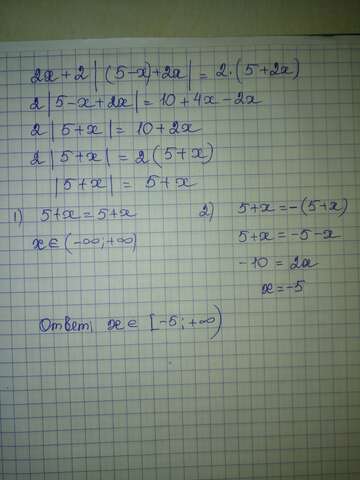 2x+2|(5-x)+2x|=2·(5+2x)
2|5-x+2x|=10+4x-2x
2|5+x|=10+2x
2|5+x|=2(5+x)
|5+x|=5+x
1) 5+x=5+x 2) 5+x=-(5+x)
x∈(-∞;+∞) 5+x=-5-x
-10=2x
x=-5
Ответ: x∈[-5;+∞)